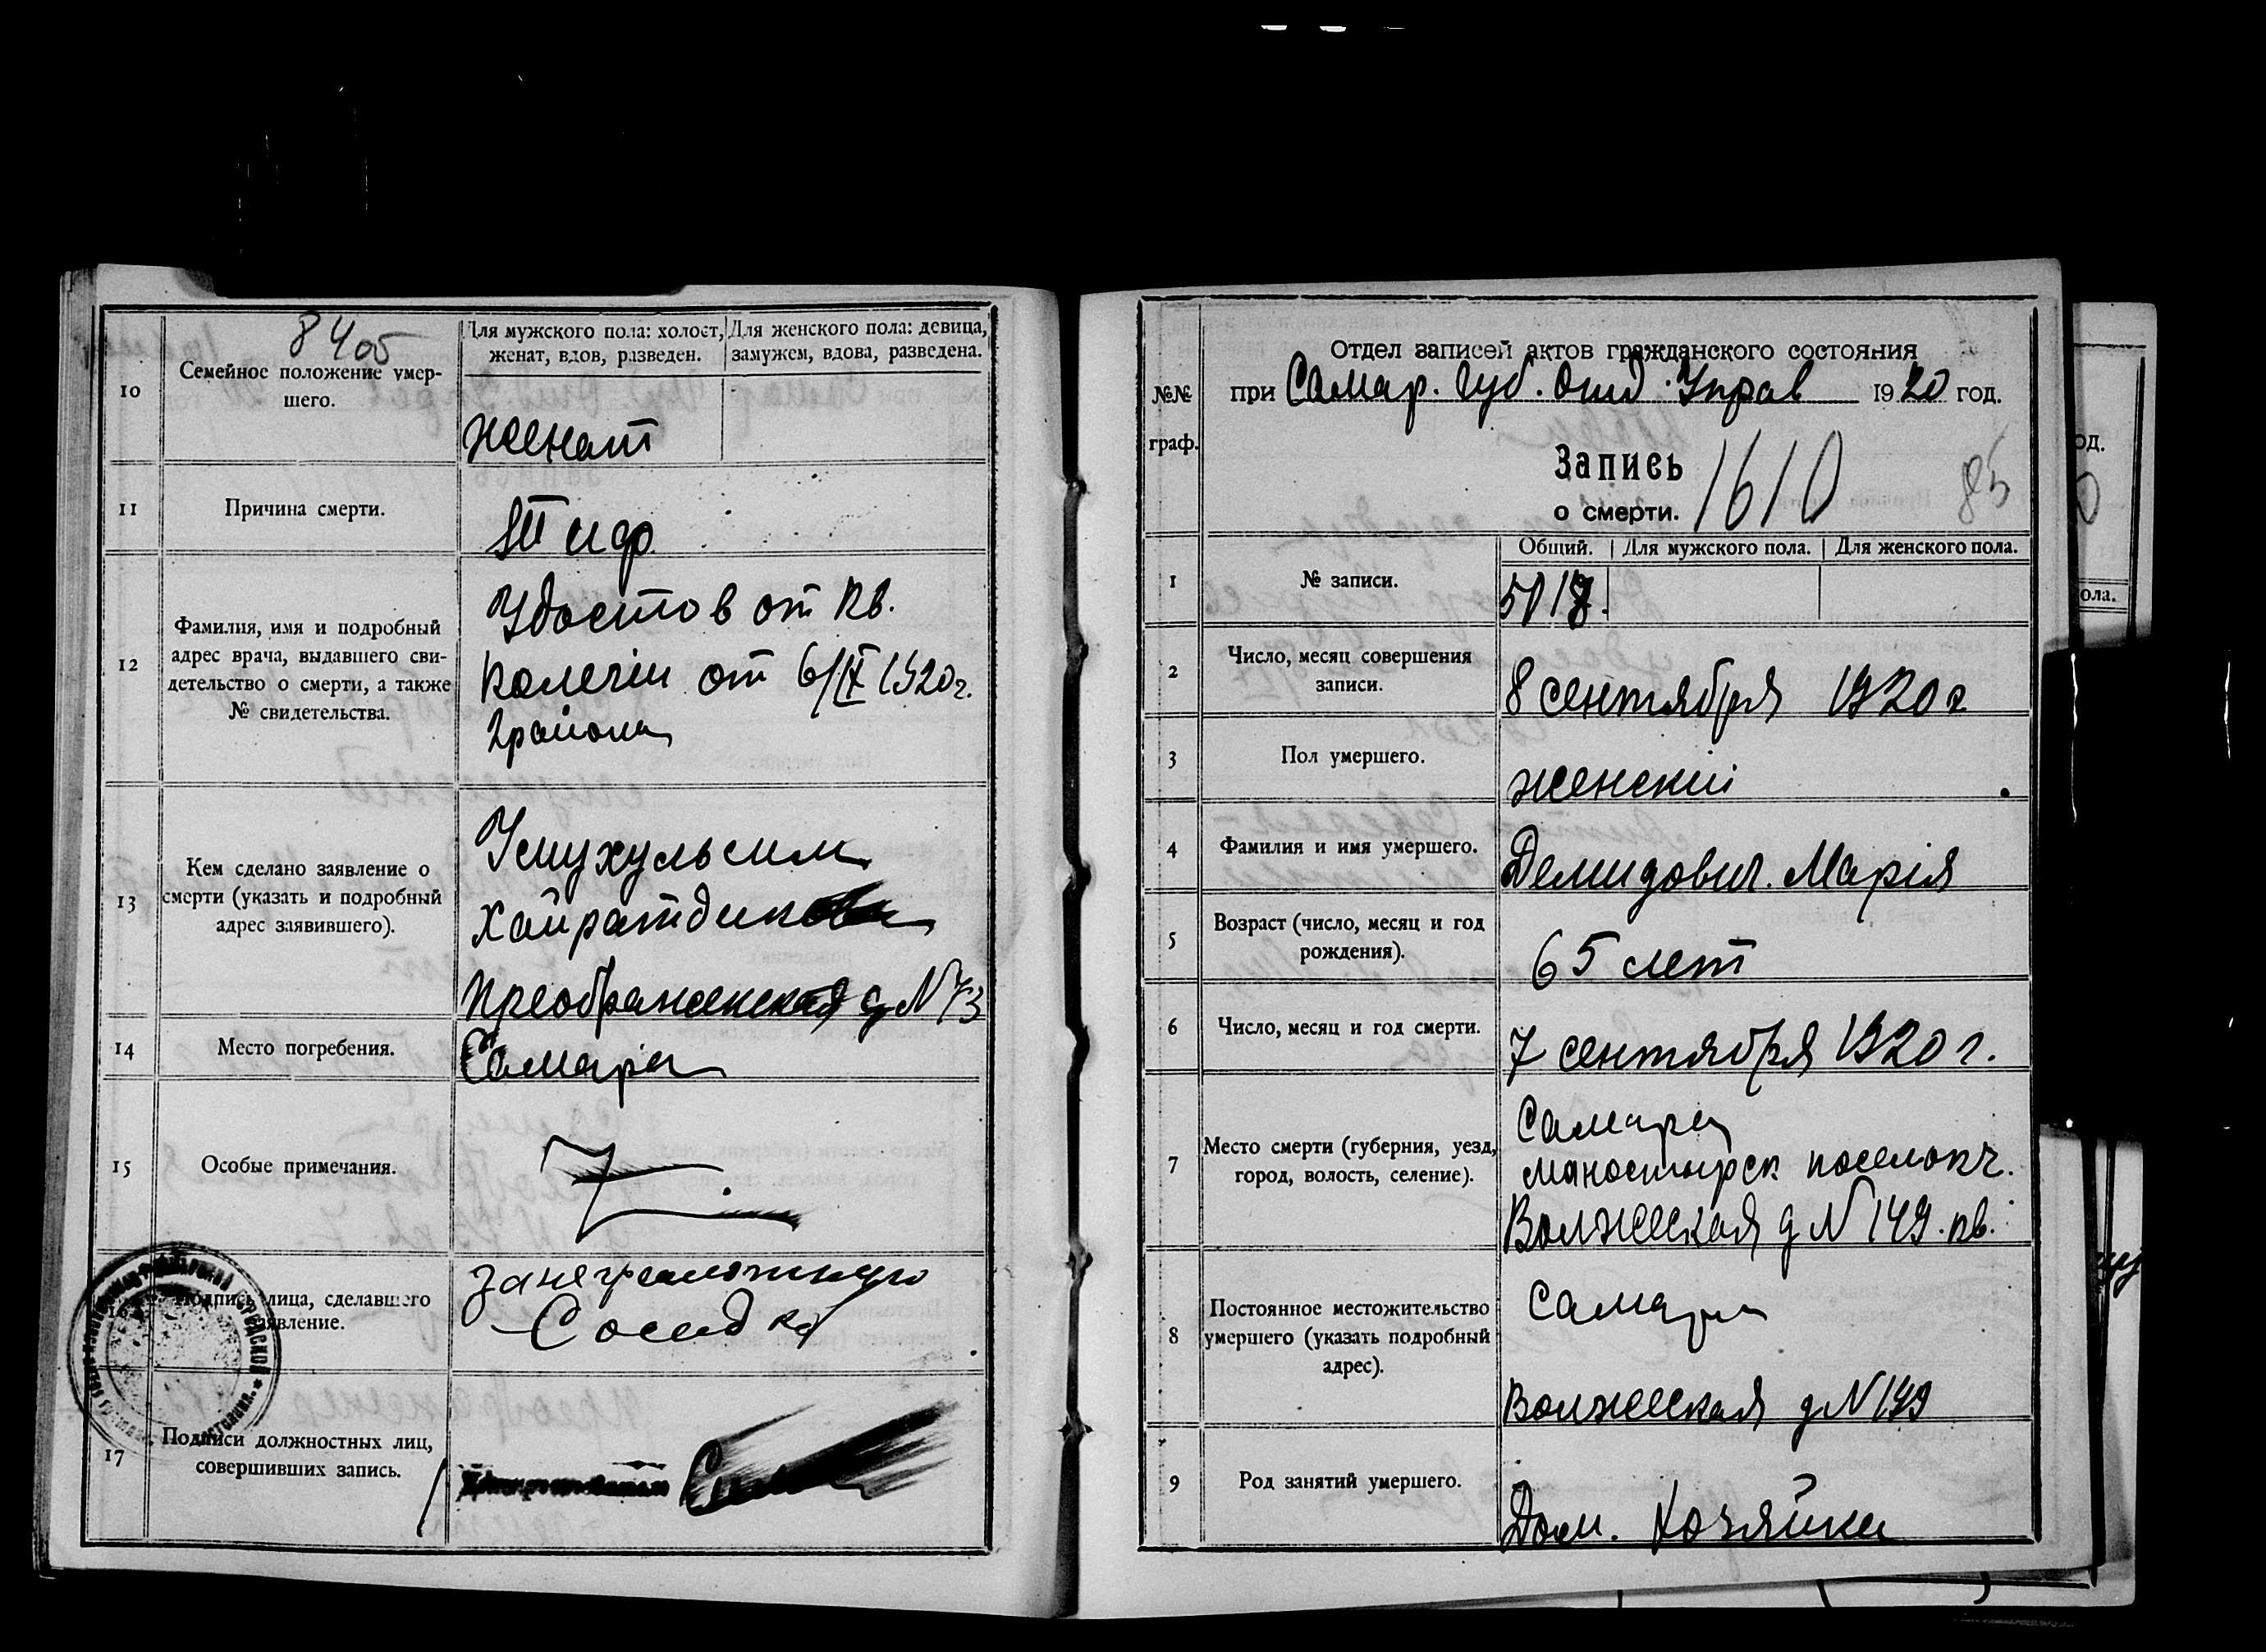 84об
10
Семейное положение умер-
шего.
Для мужского пола: холост,
женат, вдов, разведен.
Для женского пола: девица,
замужем, вдова, разведена.
женат
11
Причина смерти.
Тиф
12
Фамилия, имя и подробный
адрес врача, выдавшего сви-
детельство о смерти, а также
№ свидетельства.
Удостов от кв.
от 6/IX 1920г.
2 района
13
Кем сделано заявление о
смерти (указать и подробный
адрес заявившего).
Преображенская д N 73
14
Место погребения.
Самара
15
Особые примечания.
16
Подпись лица, сделавшего
заявление.
за неграмотную
Соседка
17
Подписи должностных лиц,
совершивших запись.
№№
граф.
Отдел записей актов гражданского состояния
при Самар. Губ. Отд. Управ 1920 год.
Запись
о смерти.
1610
85
Общий. Для мужского пола. Для женского пола.
1
№ записи.
2
Число, месяц совершения
записи.
8 сентября 1920 г
3
Пол умершего.
женскій
4
Фамилия и имя умершего.
Демидович. Марія
5
Возраст (число, месяц и год
рождения).
65 лет
6
Число, месяц и год смерти.
7 сентября 1920 г.
7
Место смерти (губерния, уезд,
город, волость, селение).
Самара
Манастырск поселок
Волжская д N 149. кв.
8
Постоянное местожительство
умершего (указать подробный
адрес).
Самара
Волжская д N 149
9
Род занятий умершего.
Дом. Хозяйка
од.
ола.